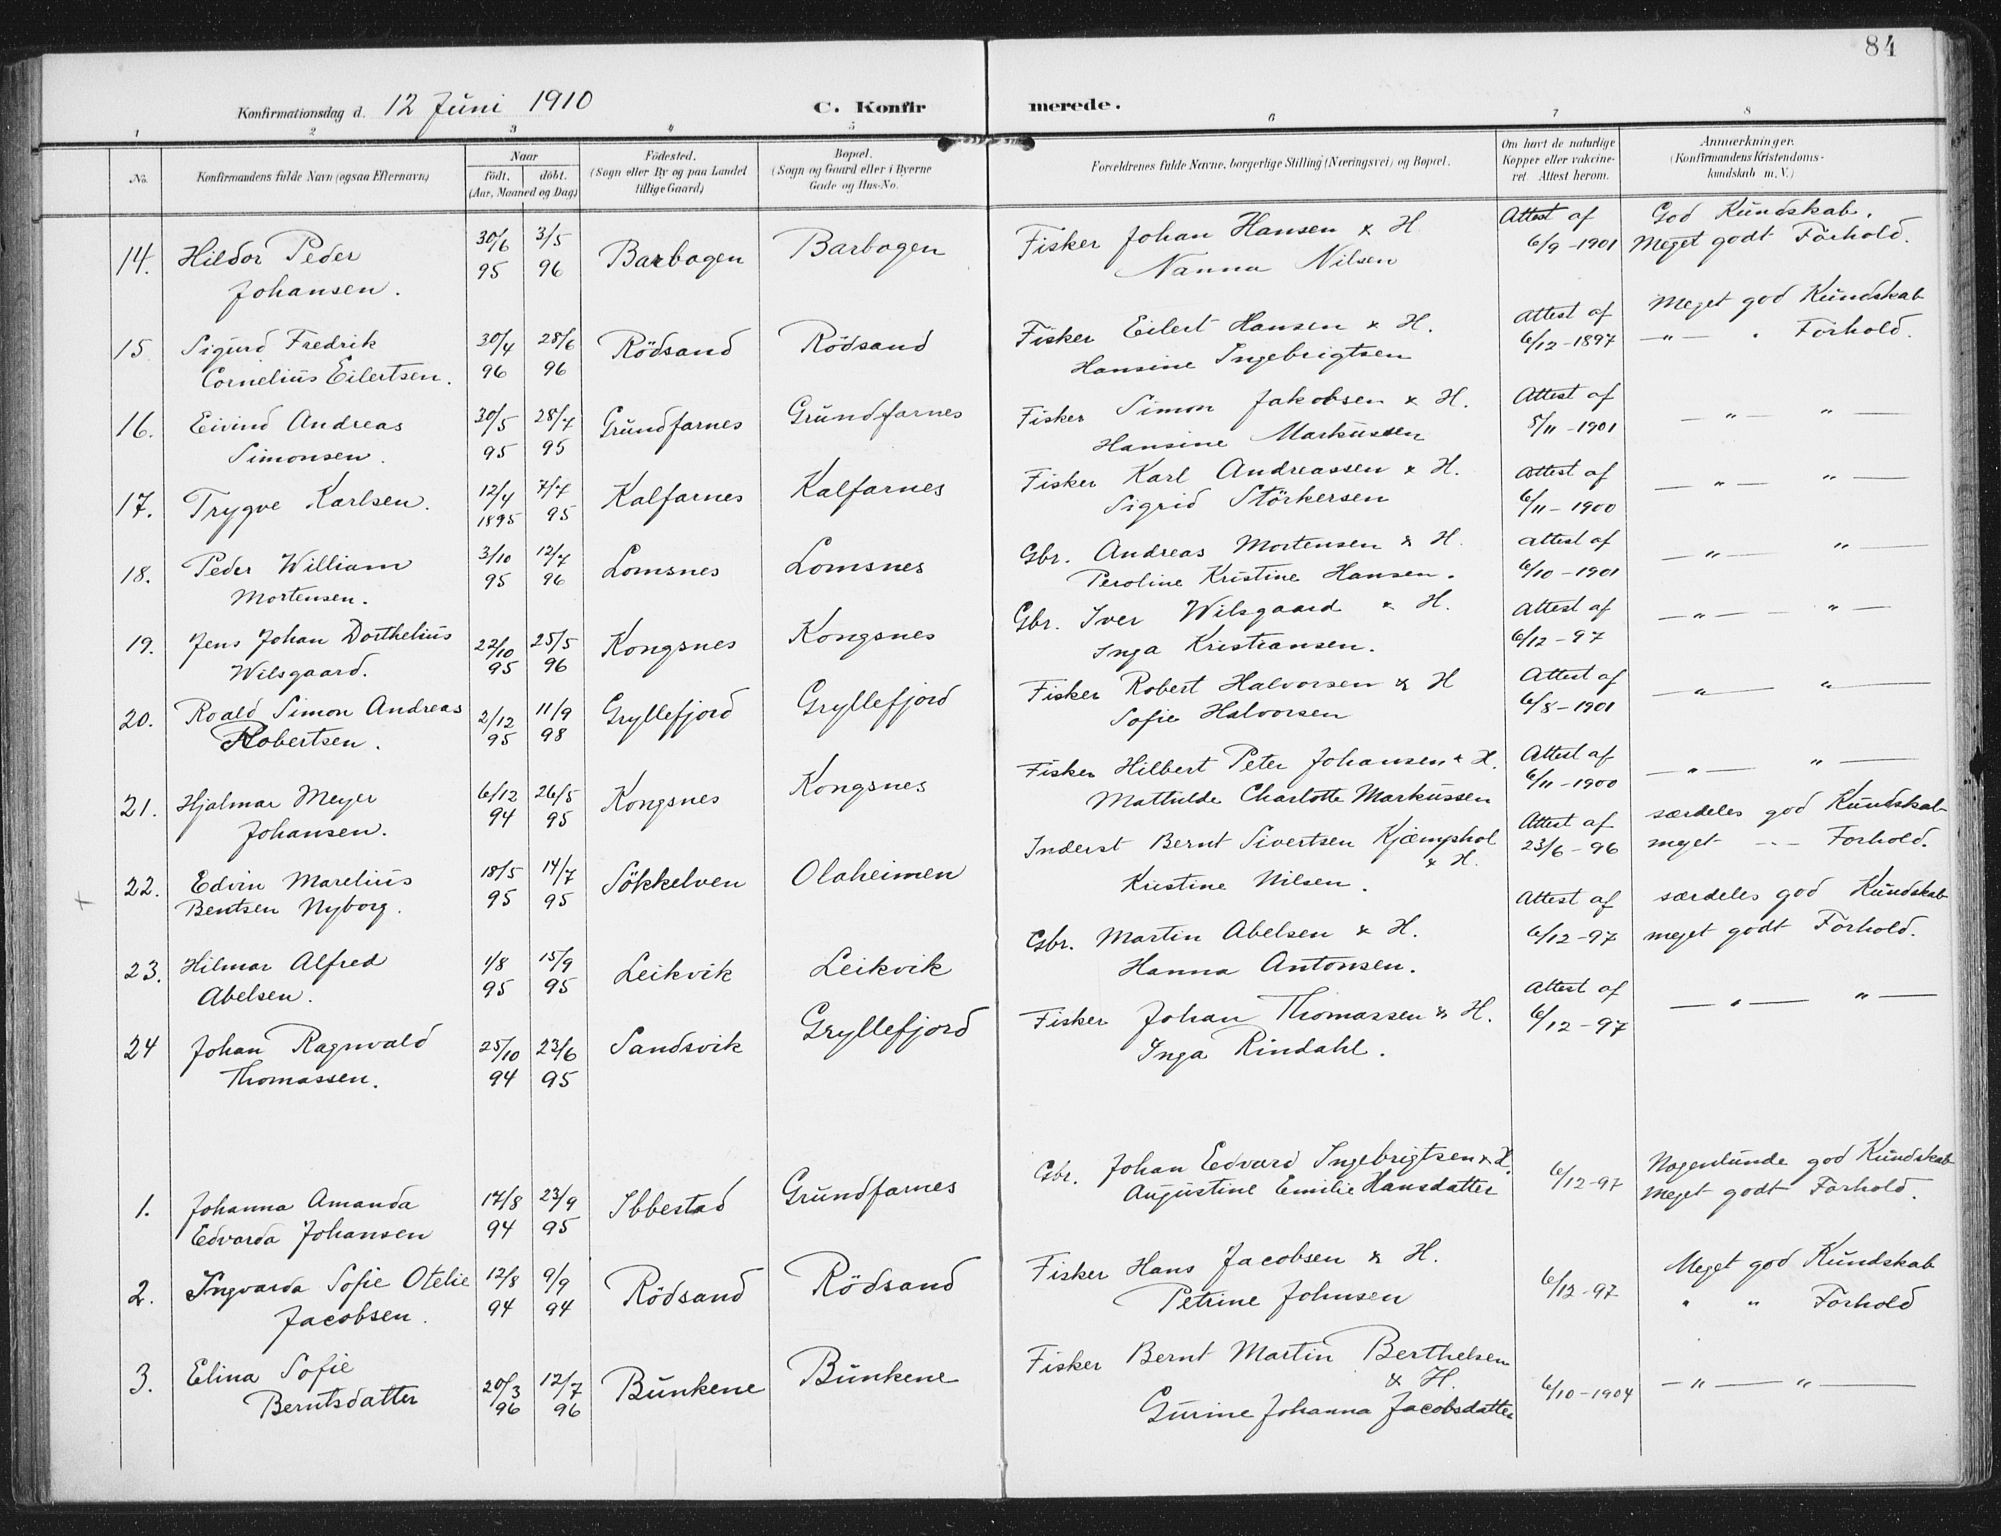 84
Konfirmationsdag d. 12 Juni 1910 C. Konfirmerede.
1 2 3 4 5 6 7 8
No. Konfirmandens fulde Navn (ogsaa Efternavn) Naar födt. döbt. (Aar, Maaned og Dag) Födested. (Sogn eller By og paa Landet tillige Gaard) Bopæl. (Sogn og Gaard eller i Byerne Gade og Hus-No. Forældrenes fulde Navne, borgerlige Stilling (Næringsvei) og Bopæl. Om havt de naturlige Kopper eller vakcineret. Attest herom. Anmærkninger. (Konfirmandens Kristendomskundskab m. V.)
14. Hildor Peder Johansen. 30/6 95 3/5 96 Barbogen Barbogen Fisker Johan Hansen & H. Nanna Nilsen Attest af 6/9-1901 God Kundskab. Meget godt Forhold.
15 Sigurd Fredrik Cornelius Eilertsen. 30/4 96 28/6 96 Rödsand Rödsand Fisker Eilert Hansen & H. Hansine Ingebrigtsen Attest af 6/12-1897 Meget god Kundskab — " — . Forhold.
16. Eivind Andreas Simonsen. 30/5 95 28/7 95 Grundfarnes Grundfarnes Fisker Simon Jakobsen & H. Hansine Markussen Attest af 5/11-1901 — " — " —
17. Trygve Karlsen. 12/4 1895 7/7 95 Kalfarnes Kalfarnes Fisker Karl Andreassen & H. Sigrid Störkersen Attest af 6/11-1900 — " — " —
18. Peder William Mortensen. 3/10 95 12/7 96 Lomsnes Lomsnes Gbr. Andreas Mortensen & H. Peroline Kristine Hansen. Attest af 6/10-1901 — " — " —
19. Jens Johan Dorthelius Wilsgaard. 22/10 95 25/5 96 Kongsnes Kongsnes Gbr. Iver Wilsgaard & H. Inga Kristiansen. Attest af 6/12-97 — " — " —
20. Roald Simon Andreas Robertsen. 2/12 95 11/9 98 Gryllefjord Gryllefjord Fisker Robert Halvorsen & H Sofie Halvorsen Attest af 6/8-1901 — " — " —
21. Hjalmar Meyer Johansen. 6/12 94 26/5 95 Kongsnes Kongsnes Fisker Hilbert Peter Johansen & H. Mathilde Charlotte Markussen Attest af 6/11-1900 — " — " —
22. Edvin Marelius Bentsen Nyborg. 18/5 95 14/7 95 Sökkelven Olaheimen Inderst Bernt Sivertsen Kjæmphol & H. Kristine Nilsen. Attest af 23/6-96 særdeles god Kundskab meget - - - Forhold.
23. Hilmar Alfred Abelsen. 1/8 95 15/9 95 Leikvik Leikvik Gbr. Martin Abelsen & H. Hanna Antonsen. Attest af 6/12-97 særdeles god Kundskab meget godt Forhold.
24 Johan Ragnvald Thomassen. 25/10 94 23/6 95 Sandsvik Gryllefjord Fisker Johan Thomassen & H. Inga Rindahl. Attest af 6/12-97 — " — " —
1. Johanna Amanda Edvarda Johansen 17/8 94 23/9 95 Ibbestad Grundfarnes Gbr. Johan Edvard Ingebrigtsen & H. Augustine Emilie Hansdatter 6/12-97 Nogenlunde god Kundskab Meget godt Forhold.
2. Ingvarda Sofie Otelie Jacobsen. 12/8 94 9/9 94 Rödsand Rödsand Fisker Hans Jacobsen & H. Petrine Johnsen 6/12-97 Meget god Kundskab " " Forhold
3. Elina Sofie Berntsdatter 20/3 96 12/7 96 Bunkene Bunkene Fisker Bernt Martin Berthelsen & H. Gurine Johanna Jacobsdatter 6/10-1904 — " — " —